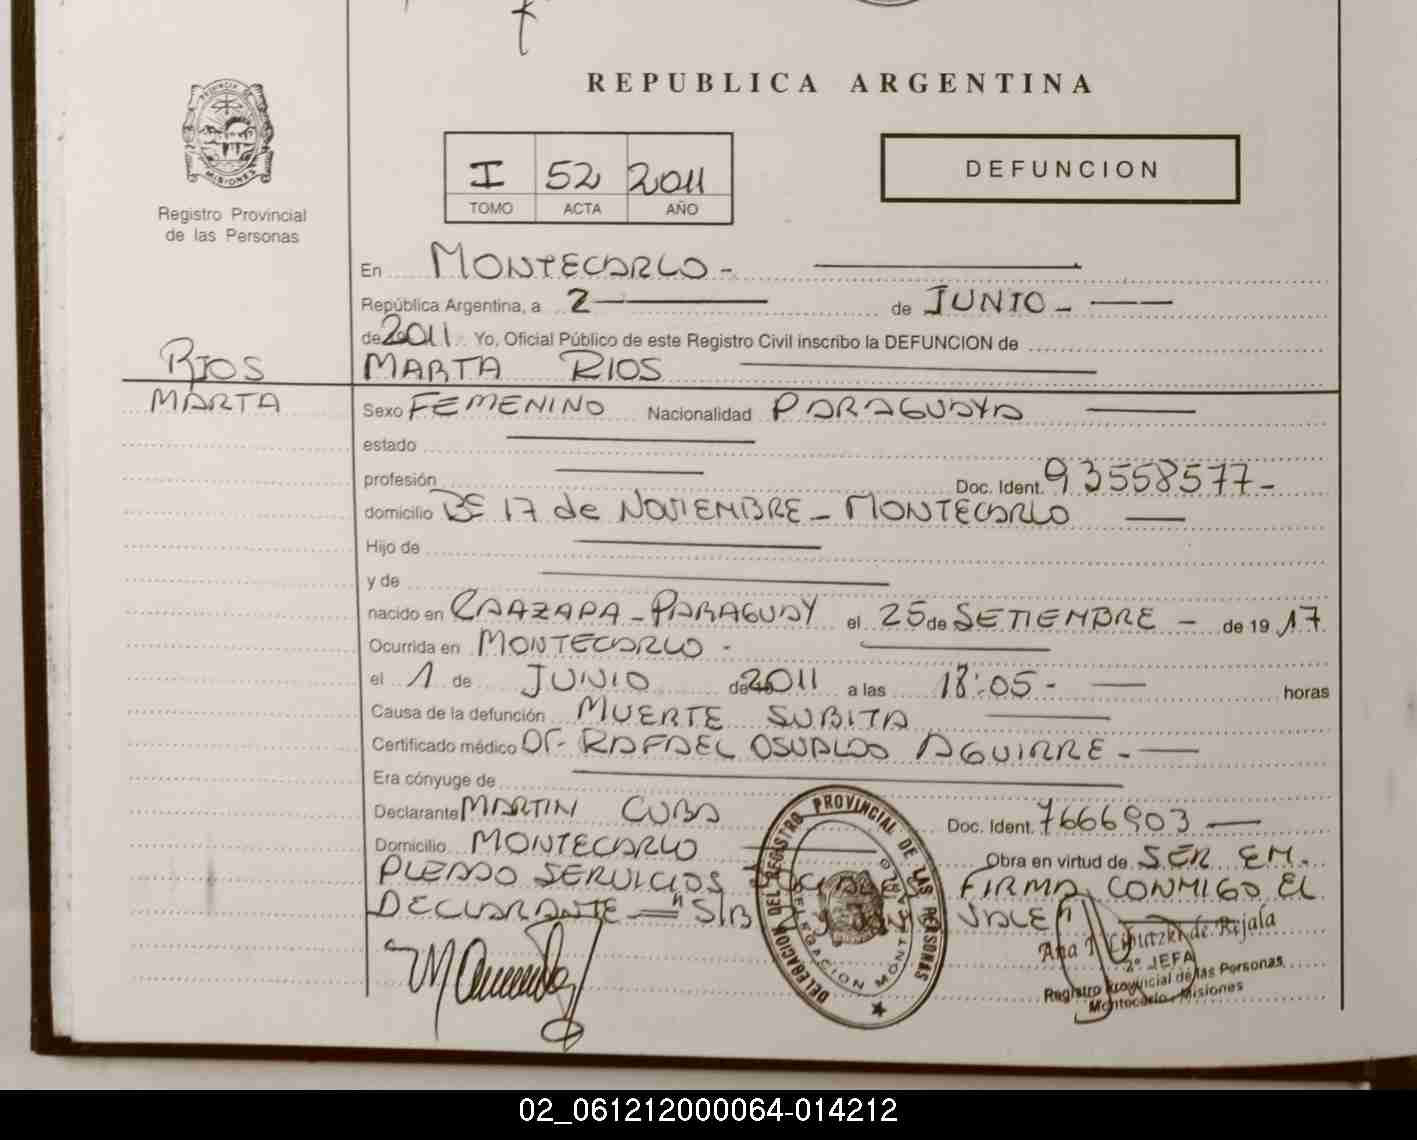 REPUBLICA ARGENTINA
PROVINCIA DE
MISIONES
Registro Provincial
de las Personas
I 52 2011
TOMO ACTA AÑO
DEFUNCION
En MONTECARLO -
República Argentina, a 2 de JUNIO -
de 2011 Yo, Oficial Público de este Registro Civil inscribo la DEFUNCION de
RIOS
MARTA RIOS
MARTA
Sexo FEMENINO Nacionalidad PARAGUAYA
estado
profesión Doc. Ident. 93558577-
domicilio Bº 17 de NOVIEMBRE - MONTECARLO
Hijo de
y de
nacido en CAAZAPA - PARAGUAY el 25 de SETIEMBRE - de 19 17
Ocurrida en MONTECARLO -
el 1 de JUNIO de 2011 a las 18:05 - horas
Causa de la defunción MUERTE SUBITA
Certificado médico Dr. RAFAEL OSVALDO AGUIRRE -
Era cónyuge de
Declarante MARTIN CUBA Doc. Ident. 7666903
Domicilio MONTECARLO Obra en virtud de SER EM-
PLEADO SERVICIOS SOCIALES FIRMA CONMIGO EL
DECLARANTE — "S/B VALE"
DELEGACION DEL REGISTRO PROVINCIAL DE LAS PERSONAS
DELEGACION MONTECARLO
Ana de Rejala
2º JEFA
Registro Provincial de las Personas
Montecarlo - Misiones
02_061212000064-014212